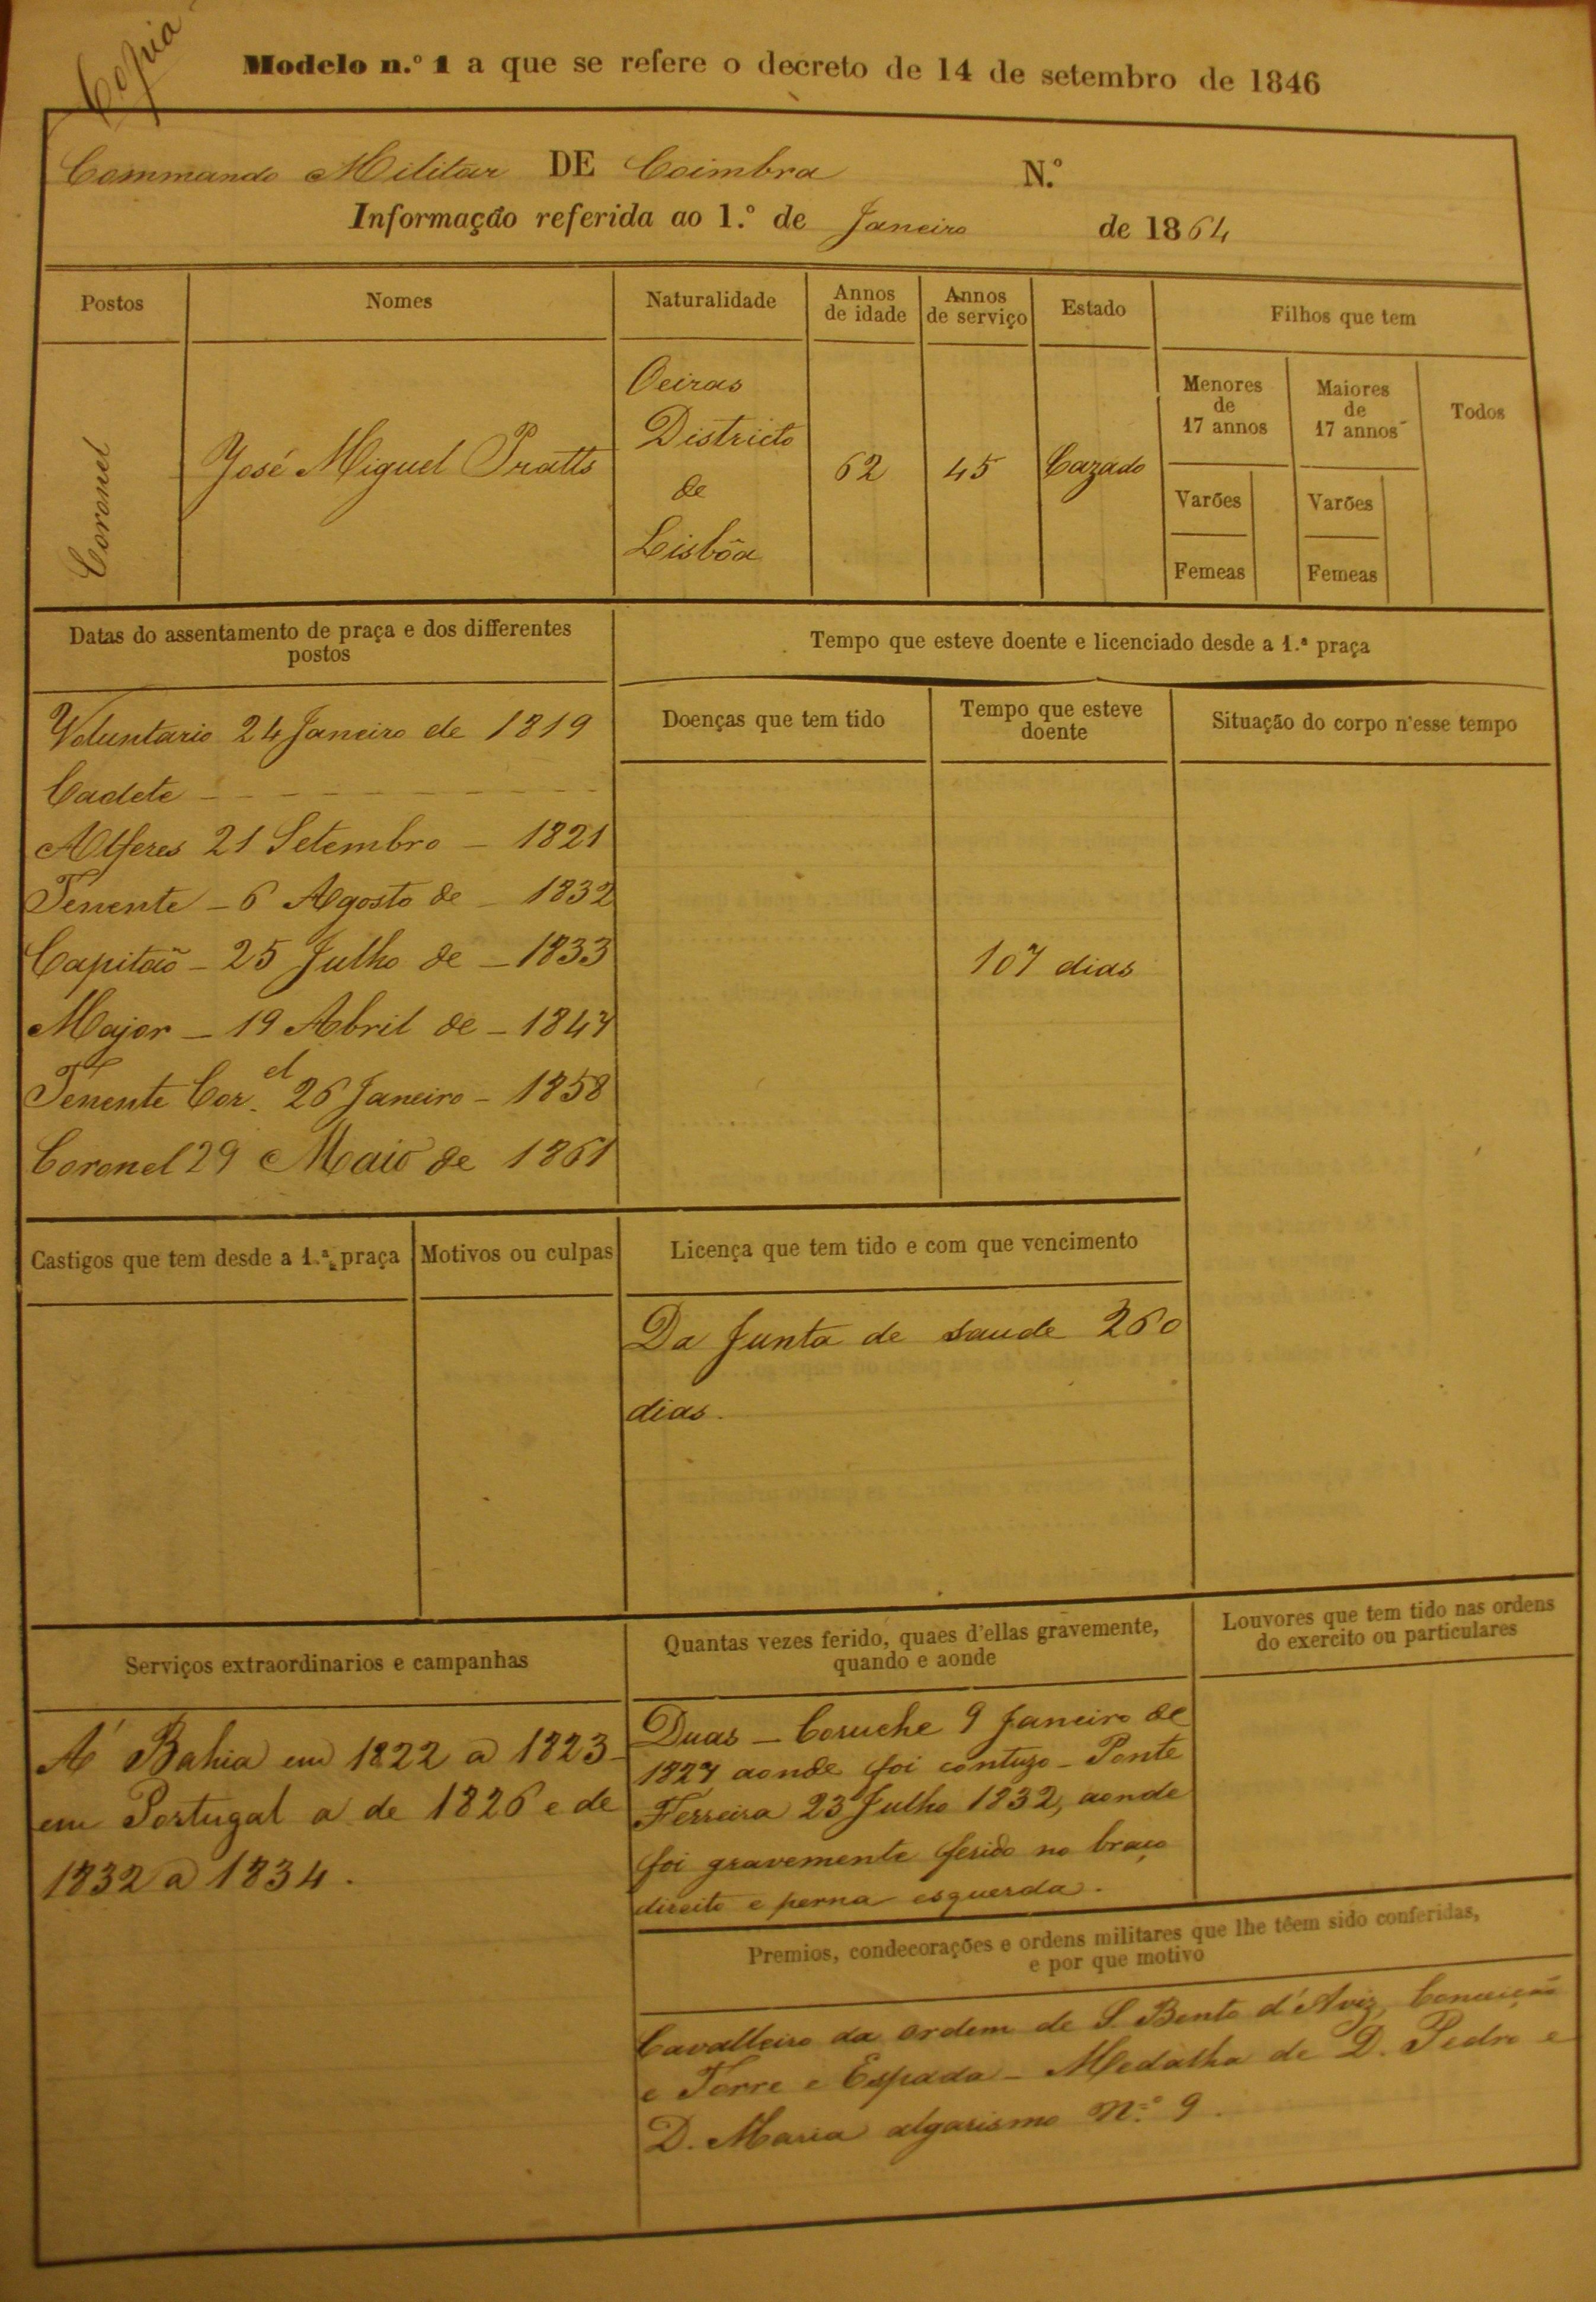 Copia
Modelo n.º 1 a que se refere o decreto de 14 de setembro de 1846
Commando Militar DE Coimbra N.º
Informação referida ao 1.º de Janeiro de 1864
Postos
Nomes
Naturalidade
Annos
de idade
Annos
de serviço
Estado
Filhos que tem
Coronel
José Miguel Pratts
Oeiras
Districto
de
Lisbôa
62
45
Cazado
Menores
de
17 annos
Maiores
de
17 annos
Todos
Varões
Varões
Femeas
Femeas
Datas do assentamento de praça e dos differentes
postos
Voluntario 24 Janeiro de 1819
Cadete - - - - - - - - - -
Alferes 21 Setembro - 1821
Tenente - 6 Agosto de - 1832
Capitaõ - 25 Julho de - 1833
Major - 19 Abril de - 1847
Tenente Cor.el 26 Janeiro - 1858
Coronel 29 Maio de 1861
Tempo que esteve doente e licenciado desde a 1.ª praça
Doenças que tem tido
Tempo que esteve
doente
107 dias
Situação do corpo n'esse tempo
Castigos que tem desde a 1.ª praça
Motivos ou culpas
Licença que tem tido e com que vencimento
Da Junta de saude 260
dias.
Serviços extraordinarios e campanhas
A' Bahia em 1822 a 1823 -
em Portugal a de 1826 e de
1832 a 1834.
Quantas vezes ferido, quaes d'ellas gravemente,
quando e aonde
Duas - Coruche 9 Janeiro de
1827 aonde foi contuzo - Ponte
Ferreira 23 Julho 1832, aonde
foi gravemente ferido no braço
direito e perna esquerda.
Louvores que tem tido nas ordens
do exercito ou particulares
Premios, condecorações e ordens militares que lhe têem sido conferidas,
e por que motivo
Cavalleiro da Ordem de S. Bento d'Aviz, Conceição
e Torre e Espada - Medalha de D. Pedro e
D. Maria algarismo N.º 9.